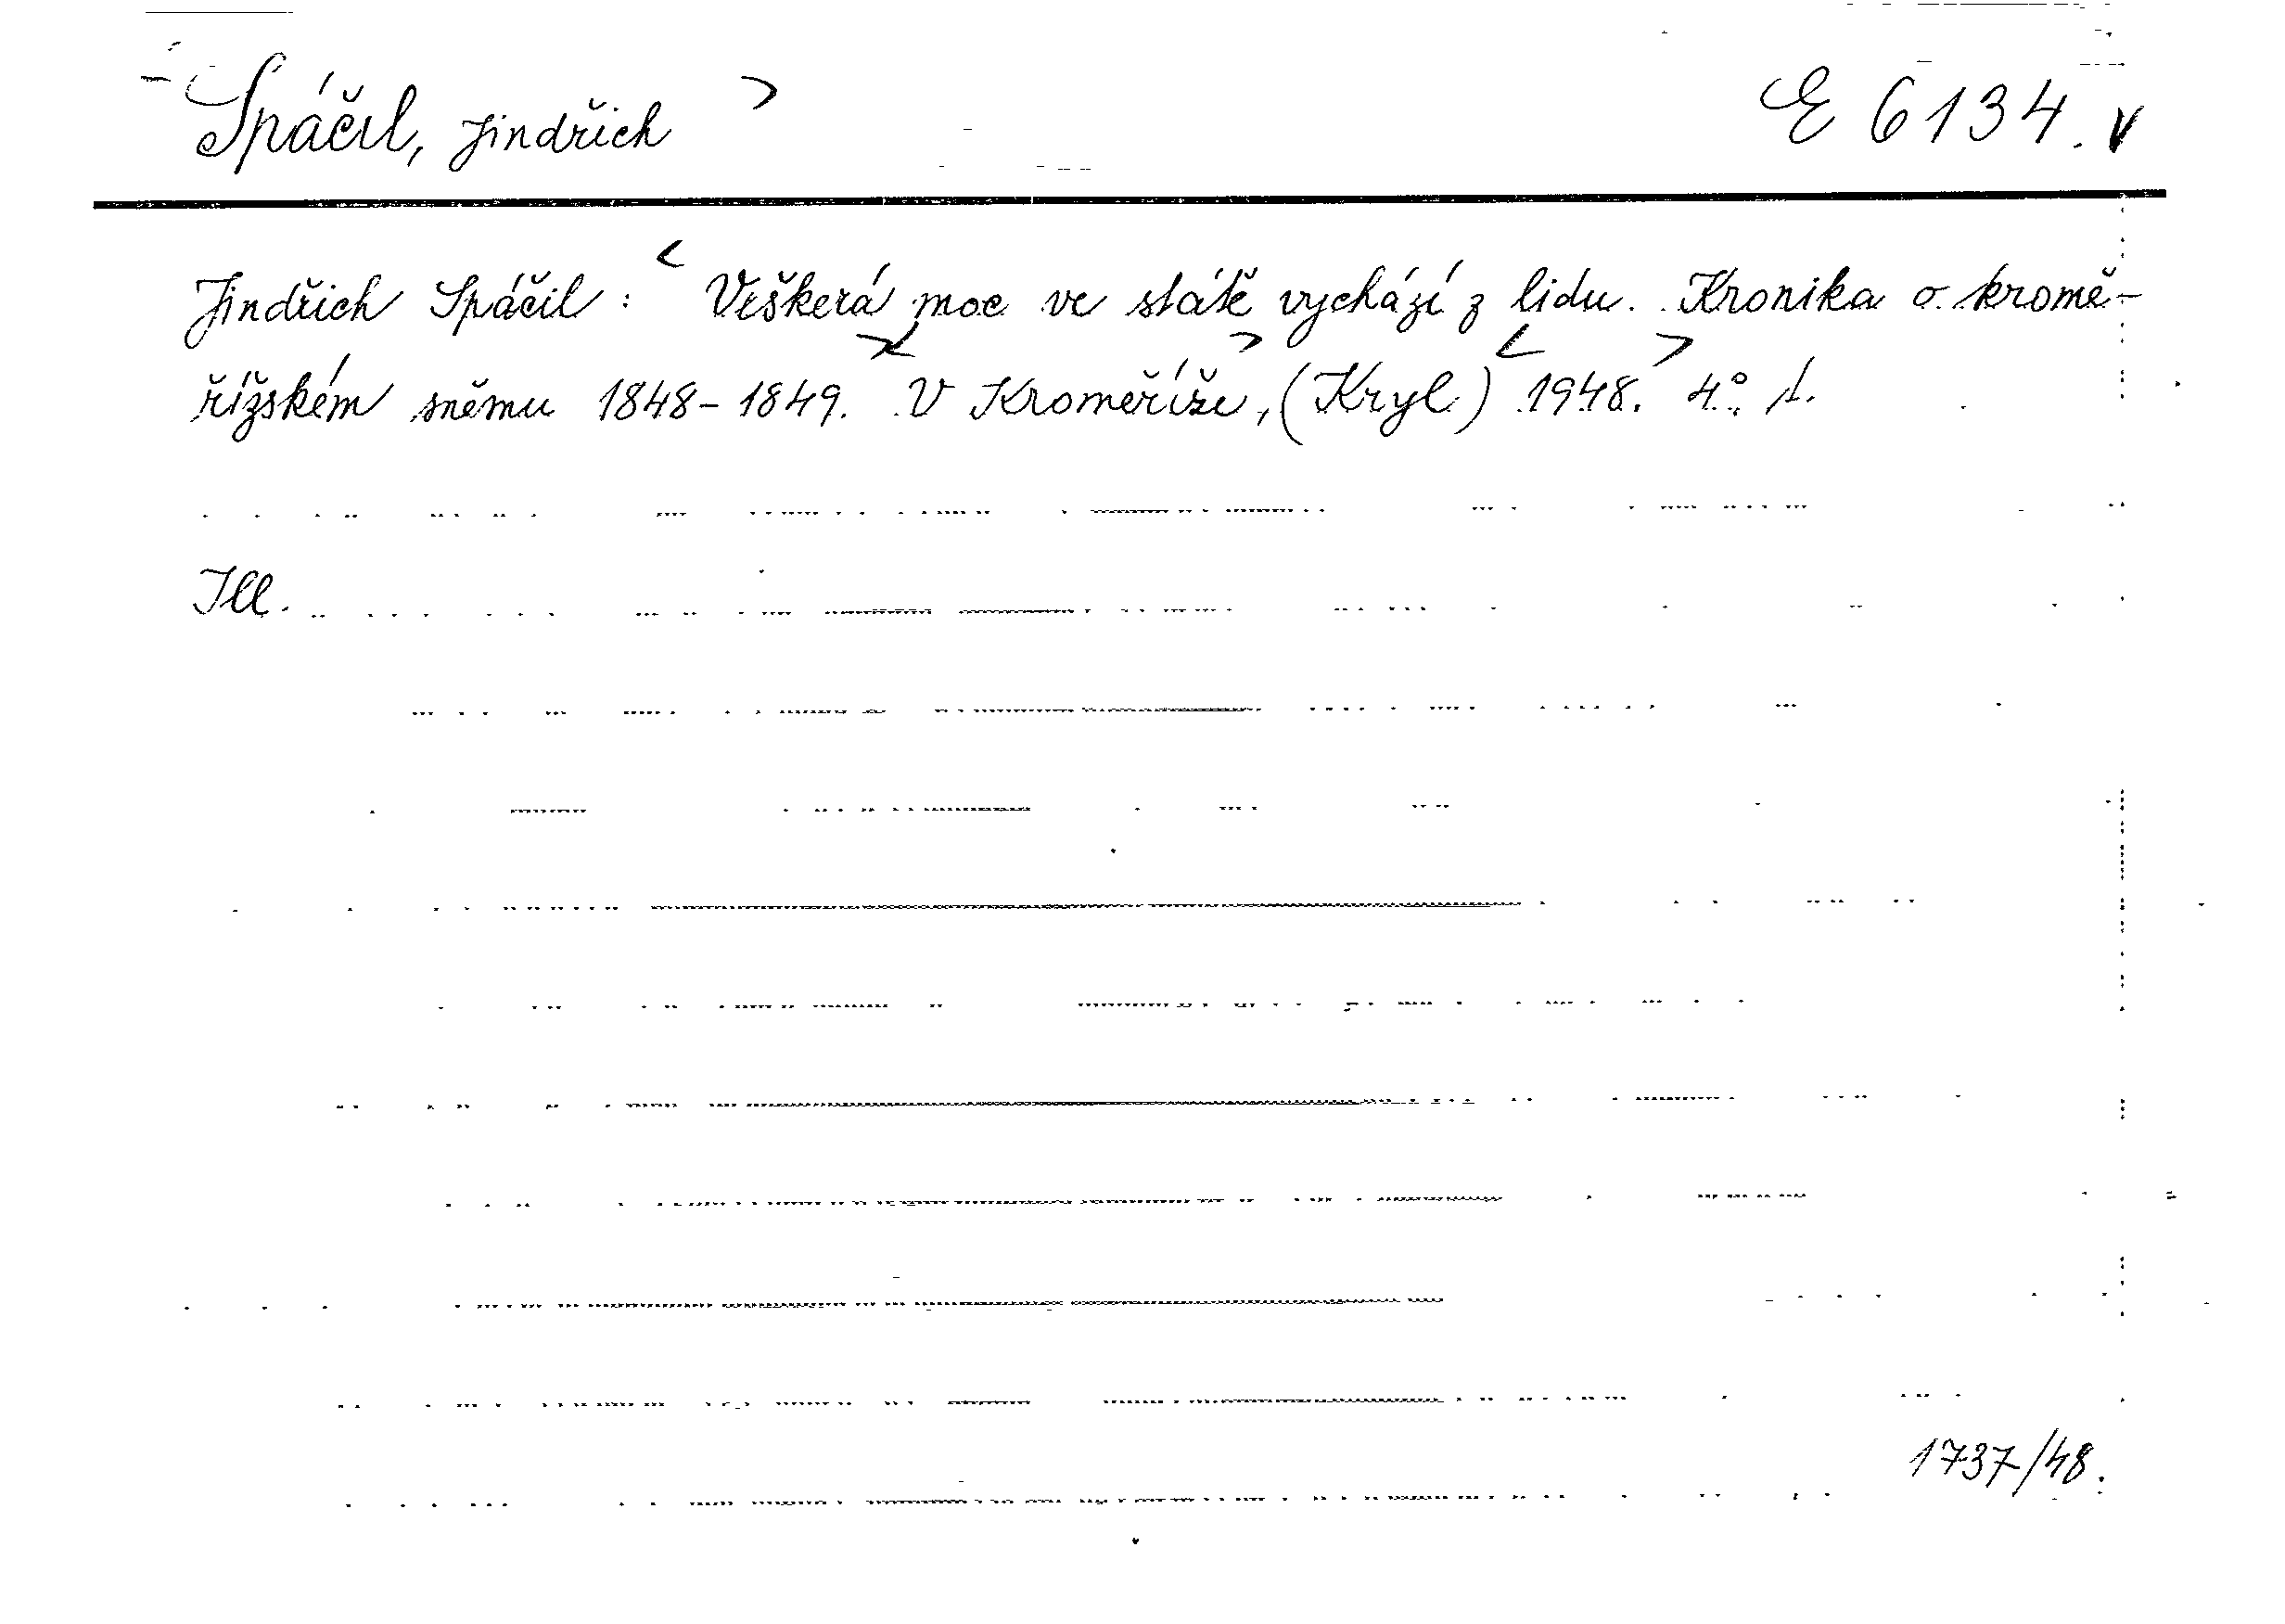 Spáčil, Jindřich E 6134. v
Jindřich Spáčil: Veškerá moc ve státě vychází z lidu. Kronika o kromě-
řížském sněmu 1848-1849. V Kroměříži, (Kryl) 1948. 4°.
Ill.
1737/48.